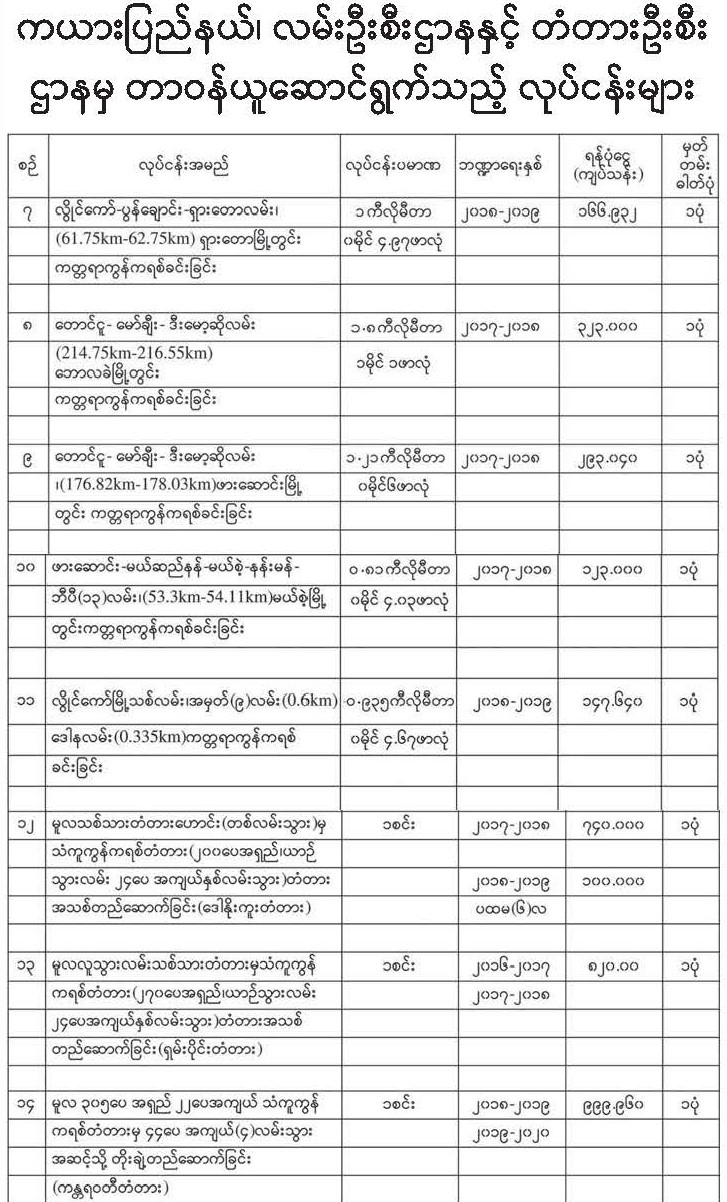 ကယားပြည်နယ်၊ လမ်းဦးစီးဌာနနှင့် တံတားဦးစီး
ဌာနမှ တာဝန်ယူဆောင်ရွက်သည့် လုပ်ငန်းများ
စဉ် လုပ်ငန်းအမည် လုပ်ငန်းပမာဏ ဘဏ္ဍာရေးနှစ် ရန်ပုံငွေ (ကျပ်သန်း) မှတ်တမ်းဓါတ်ပုံ
၇ လွိုင်ကော်-ပွန်ချောင်း-ရှားတောလမ်း၊ ၁ကီလိုမီတာ ၂၀၁၈-၂၀၁၉ ၁၆၆.၉၃၂ ၁ပုံ
(61.75km-62.75km) ရှားတောမြို့တွင်း ၀မိုင် ၄.၉၇ဖာလုံ
ကတ္တရာကွန်ကရစ်ခင်းခြင်း
၈ တောင်ငူ- မော်ချီး- ဒီးမော့ဆိုလမ်း ၁.၈ကီလိုမီတာ ၂၀၁၇-၂၀၁၈ ၃၂၃.၀၀၀ ၁ပုံ
(214.75km-216.55km) ၁မိုင် ၁ဖာလုံ
ဘောလခဲမြို့တွင်း
ကတ္တရာကွန်ကရစ်ခင်းခြင်း
၉ တောင်ငူ- မော်ချီး- ဒီးမော့ဆိုလမ်း ၁.၂၁ကီလိုမီတာ ၂၀၁၇-၂၀၁၈ ၂၉၃.၀၄၀ ၁ပုံ
၊(176.82km-178.03km)ဖားဆောင်းမြို့ ၀မိုင်၆ဖာလုံ
တွင်း ကတ္တရာကွန်ကရစ်ခင်းခြင်း
၁၀ ဖားဆောင်း-မယ်ဆည်နန်-မယ်စဲ့-နန်းမန်- ၀.၈၁ကီလိုမီတာ ၂၀၁၇-၂၀၁၈ ၁၂၃.၀၀၀ ၁ပုံ
ဘီပီ(၁၃)လမ်း၊(53.3km-54.11km)မယ်စဲ့မြို့ ၀မိုင် ၄.၀၃ဖာလုံ
တွင်းကတ္တရာကွန်ကရစ်ခင်းခြင်း
၁၁ လွိုင်ကော်မြို့သစ်လမ်း၊အမှတ်(၉)လမ်း(0.6km) ၀.၉၃၅ကီလိုမီတာ ၂၀၁၈-၂၀၁၉ ၁၄၇.၆၄၀ ၁ပုံ
ဒေါနလမ်း(0.335km)ကတ္တရာကွန်ကရစ် ၀မိုင် ၄.၆၇ဖာလုံ
ခင်းခြင်း
၁၂ မူလသစ်သားတံတားဟောင်း(တစ်လမ်းသွား)မှ ၁စင်း ၂၀၁၇-၂၀၁၈ ၇၄၀.၀၀၀ ၁ပုံ
သံကူကွန်ကရစ်တံတား(၂၀၀ပေအရှည်၊ယာဉ်
သွားလမ်း ၂၄ပေ အကျယ်နှစ်လမ်းသွား)တံတား ၂၀၁၈-၂၀၁၉ ၁၀၀.၀၀၀
အသစ်တည်ဆောက်ခြင်း(ဒေါနိုးကူးတံတား) ပထမ(၆)လ
၁၃ မူလလူသွားလမ်းသစ်သားတံတားမှသံကူကွန် ၁စင်း ၂၀၁၆-၂၀၁၇ ၈၂၀.၀၀ ၁ပုံ
ကရစ်တံတား(၂၇၀ပေအရှည်၊ယာဉ်သွားလမ်း ၂၀၁၇-၂၀၁၈
၂၄ပေအကျယ်နှစ်လမ်းသွား)တံတားအသစ်
တည်ဆောက်ခြင်း(ရှမ်းပိုင်းတံတား)
၁၄ မူလ ၃၀၅ပေ အရှည် ၂၂ပေအကျယ် သံကူကွန် ၁စင်း ၂၀၁၈-၂၀၁၉ ၉၉၉.၉၆၀ ၁ပုံ
ကရစ်တံတားမှ ၄၄ပေ အကျယ်(၄)လမ်းသွား ၂၀၁၉-၂၀၂၀
အဆင့်သို့ တိုးချဲ့တည်ဆောက်ခြင်း
(ကန္တရဝတီတံတား)